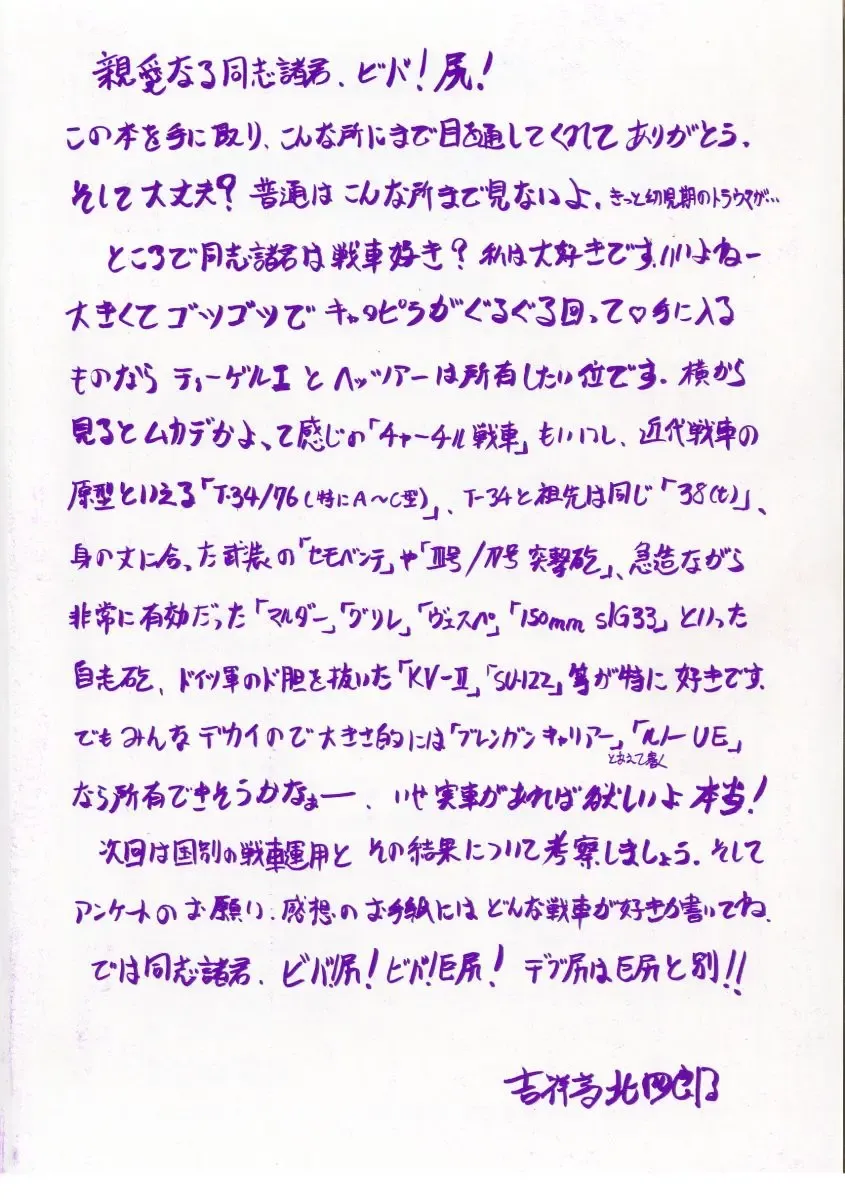 親愛なる同志諸君、ビバ!尻!
この本を手に取り、こんな所にまで目を通してくれて ありがとう。
そして大丈夫? 普通は こんな所まで見ないよ。きっと幼児期のトラウマが…
ところで同志諸君は戦車好き? 私は大好きです。いいよねー
大きくて ゴツゴツで キャタピラがぐるぐる回って♡手に入る
ものなら ティーゲルⅠ と ヘッツァーは所有したい位です。横から
見るとムカデかよ、って感じの「チャーチル戦車」もいいし、近代戦車の
原型といえる「T-34/76(特にA〜C型)」、T-34と祖先は同じ「38(t)」、
身の丈に合った武装の「セモベンテ」や「Ⅲ号/Ⅳ号 突撃砲」、急造ながら
非常に有効だった「マルダー」「グリレ」「ヴェスペ」「150mm sIG33」といった
自走砲、ドイツ軍のド胆を抜いた「KV-Ⅱ」「SU-122」等が特に 好きです。
でも みんな デカイので 大きさ的には「ブレンガン キャリアー」「ルノー UE」
とあえて書く
なら所有できそうかなぁー、いせ実車があれば欲しいよ 本当!
次回は国別の戦車運用と その結果について考察しましょう。そして
アンケートのお願い、感想のお手紙には どんな戦車が好きか書いてね。
では同志諸君、ビバ!尻! ビバ!巨尻! デブ尻は巨尻と別!!
吉祥寺北四郎